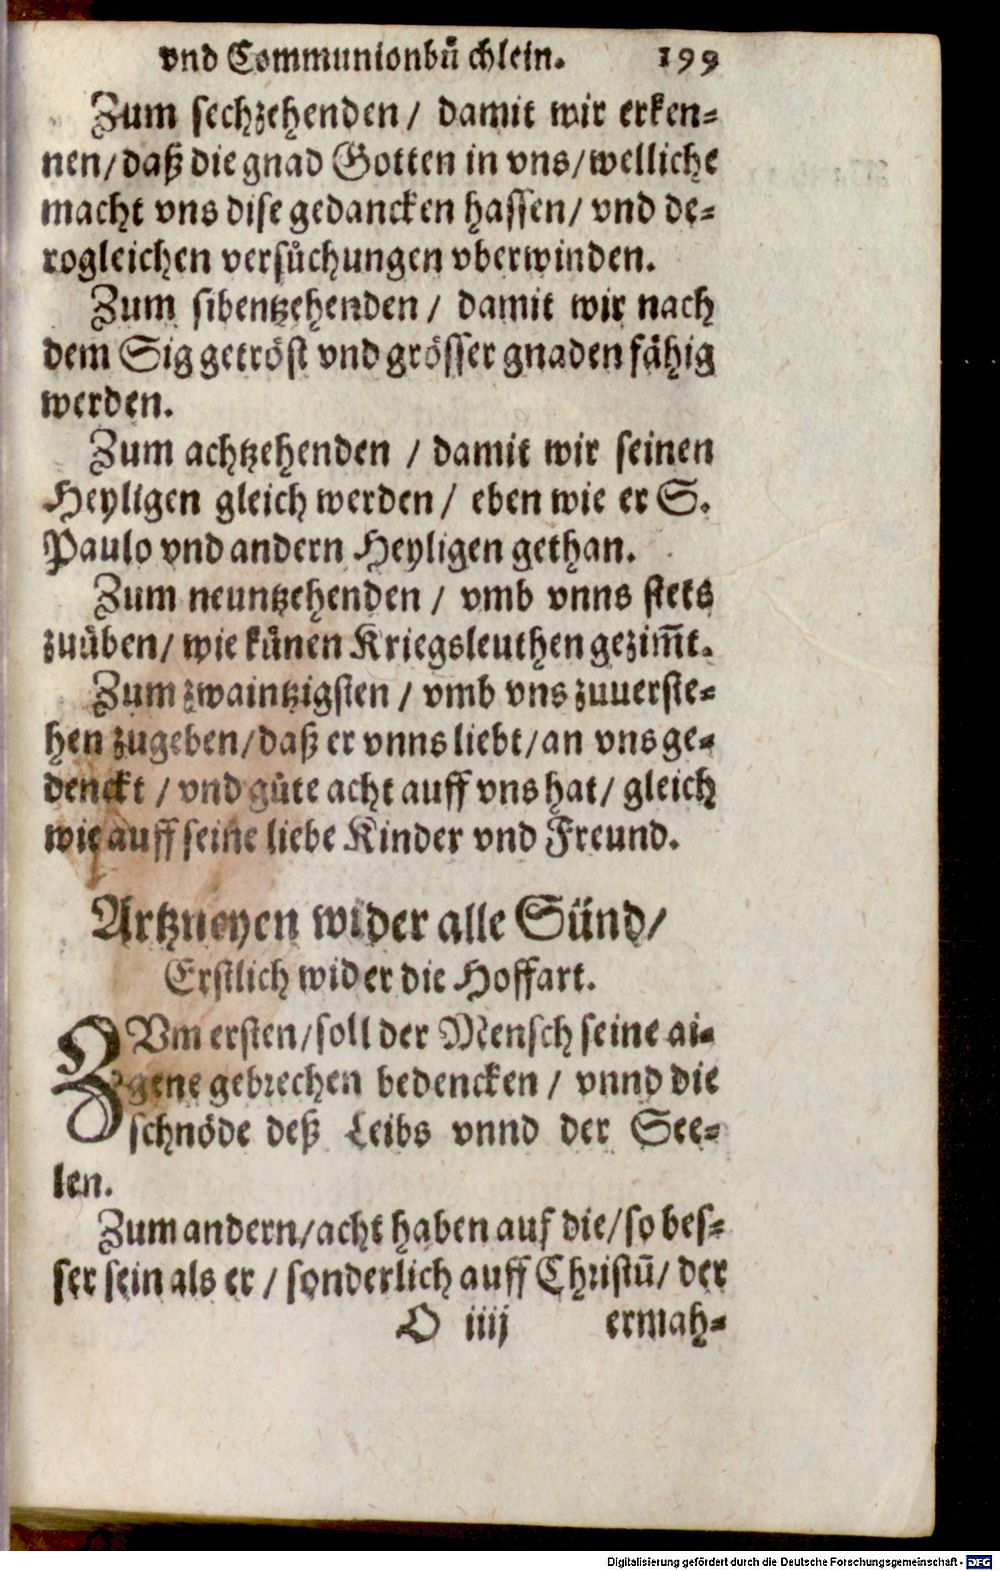 vnd Communionbuͤchlein. 199
Zum sechzehenden / damit wir erken-
nen/ daß die gnad Gotten in vns/ welliche
macht vns dise gedancken hassen/ vnd de-
rogleichen versuͤchungen vberwinden.
Zum sibentzehenden / damit wir nach
dem Sig getröst vnd grösser gnaden fähig
werden.
Zum achtzehenden / damit wir seinen
Heyligen gleich werden / eben wie er S.
Paulo vnd andern Heyligen gethan.
Zum neuntzehenden / vmb vnns stets
zuüben/ wie künen Kriegsleuthen gezim̃t.
Zum zwaintzigsten / vmb vns zuuerste-
hen zugeben/ daß er vnns liebt/ an vns ge-
denckt / vnd guͤte acht auff vns hat/ gleich
wie auff seine liebe Kinder vnd Freund.
Artzneyen wider alle Sünd/
Erstlich wider die Hoffart.
ZVm ersten/ soll der Mensch seine ai-
gene gebrechen bedencken / vnnd die
schnöde deß Leibs vnnd der See-
len.
Zum andern/ acht haben auf die/ so bes-
ser sein als er / sonderlich auff Christū/ der
O iiij ermah-
Digitalisierung gefördert durch die Deutsche Forschungsgemeinschaft - DFG